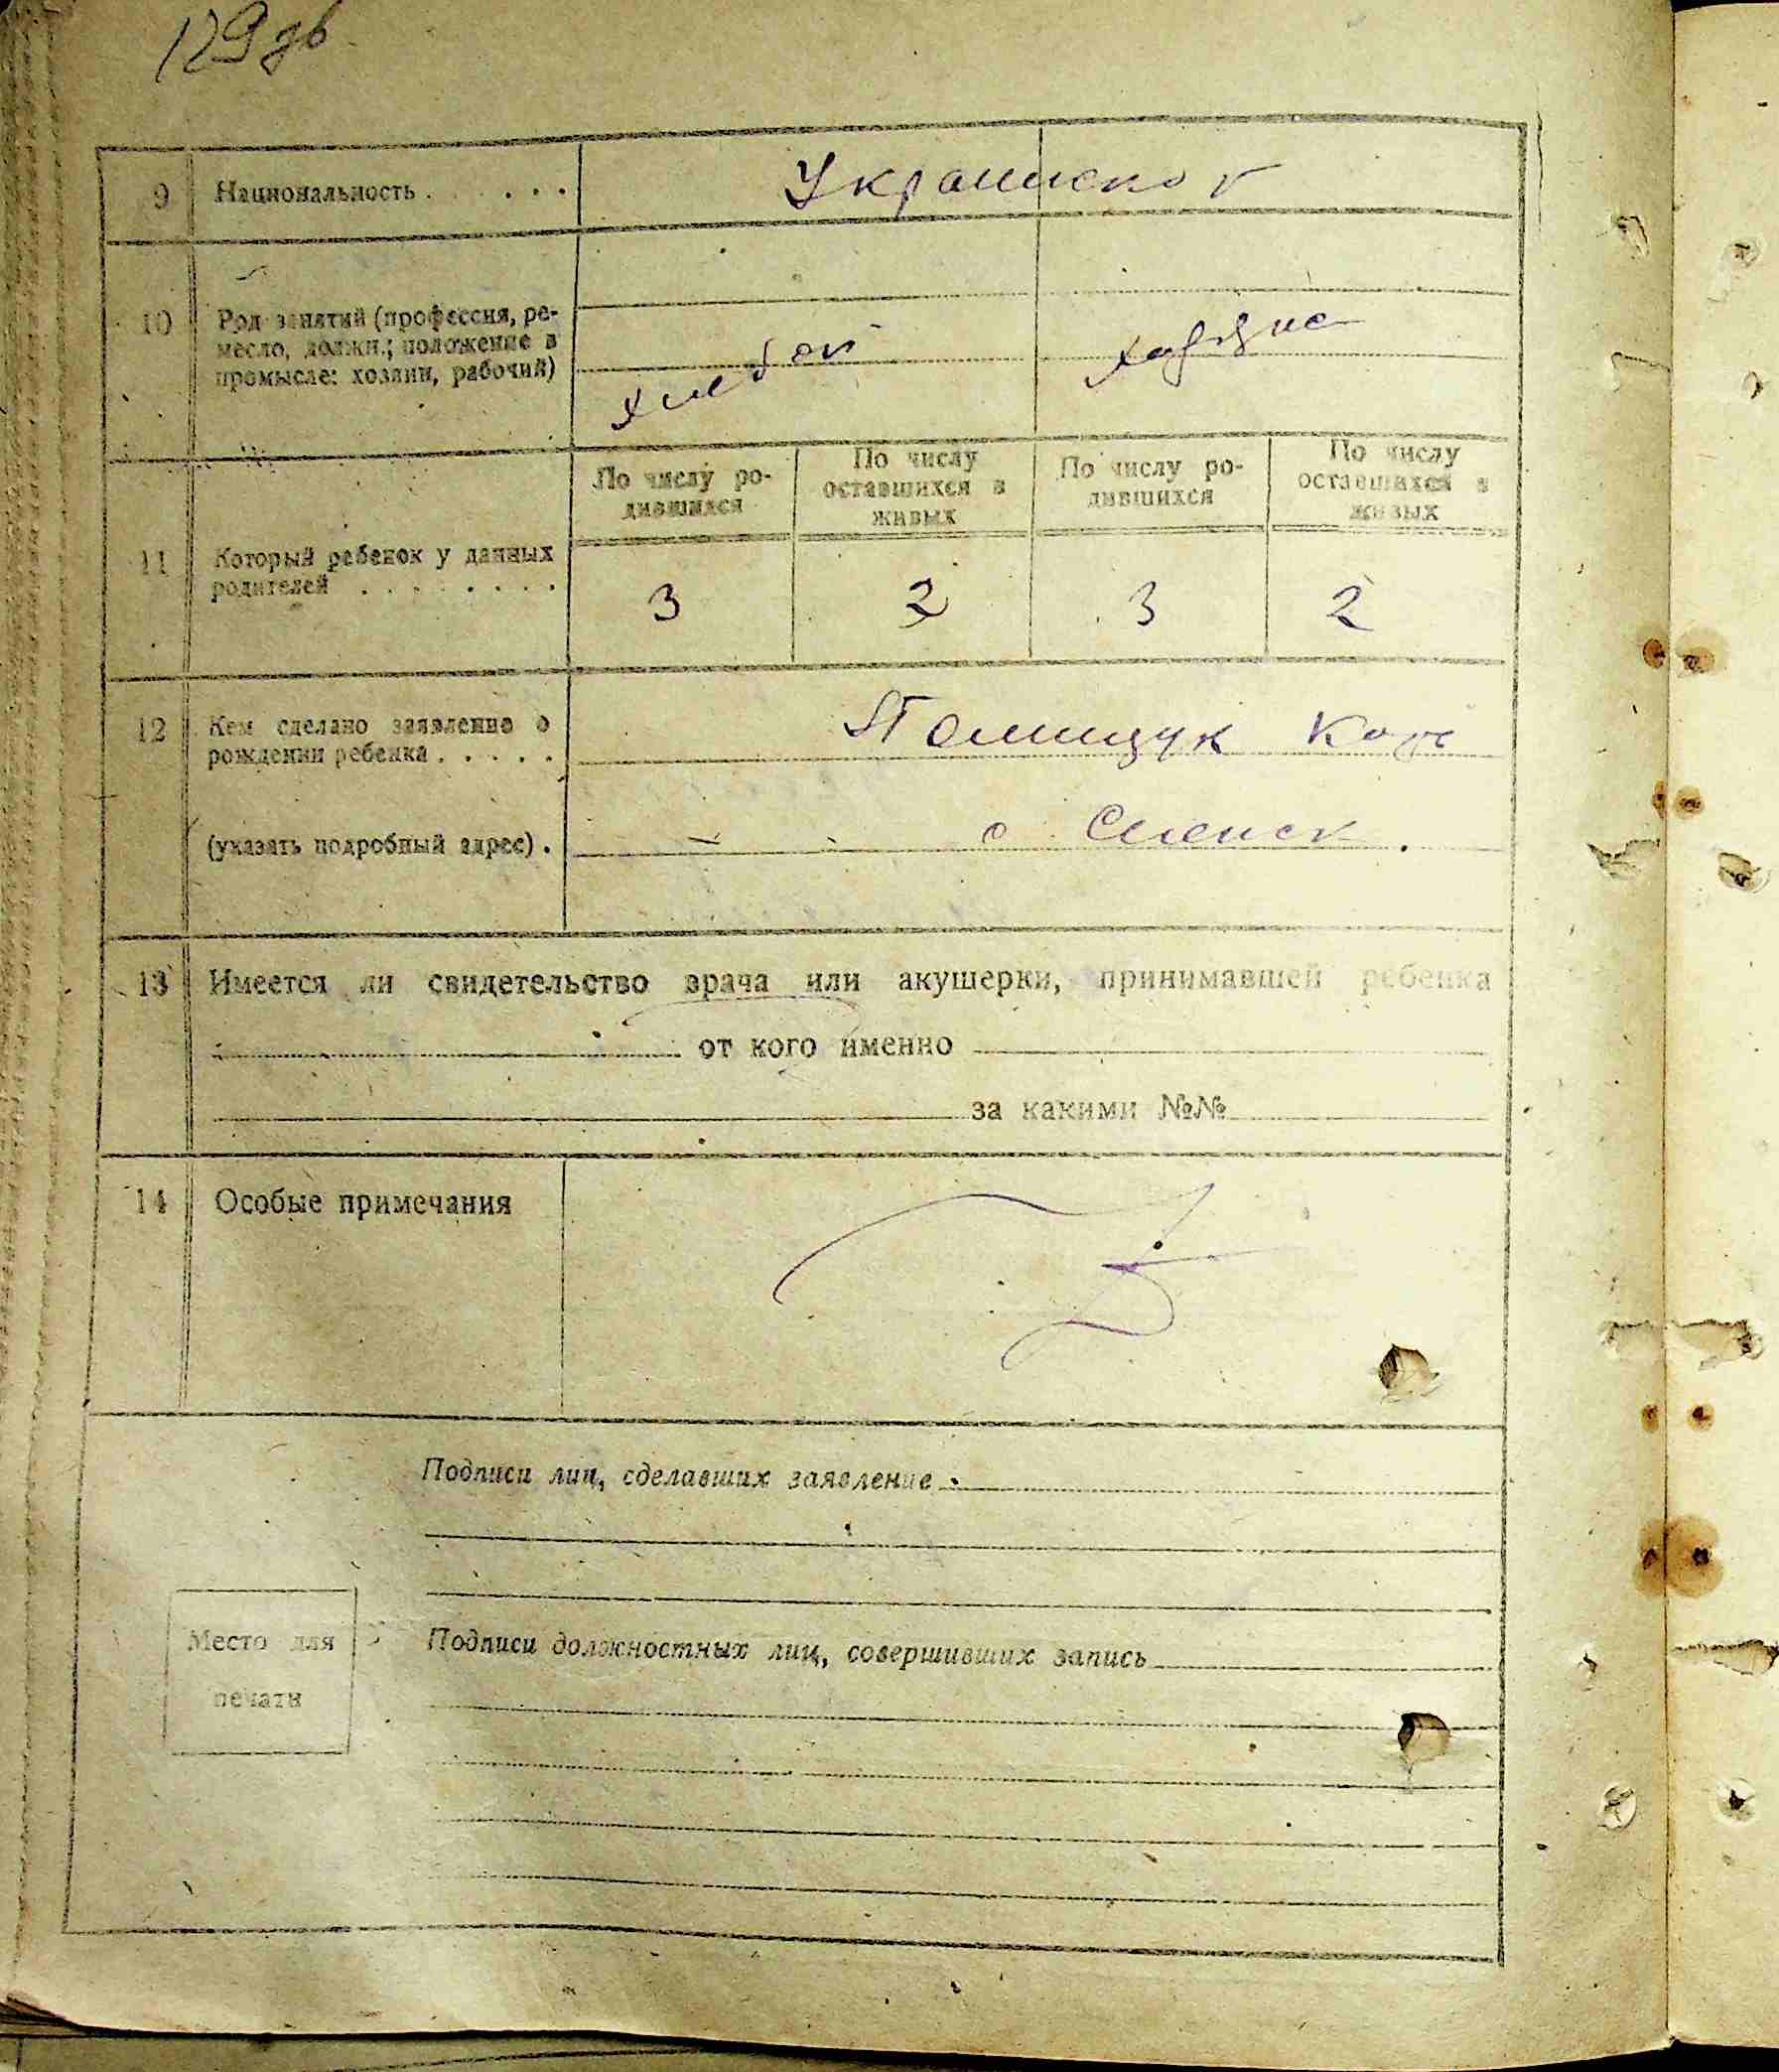 129 зв
9 Национальность . . . . . . Украинской
10 Род занятий (профессия, ре-
месло, должн.; положение в
промысле: хозяин, рабочий)
По числу ро-
дившихся
По числу
оставшихся в
живых
По числу ро-
дившихся
По числу
оставшихся в
живых
11 Который ребенок у данных
родителей . . . . . . . .
3 2 3 2
12 Кем сделано заявление о
рождении ребенка . . . . .
(указать подробный адрес) .
с
13 Имеется ли свидетельство врача или акушерки, принимавшей ребенка
от кого именно
за какими №№
14 Особые примечания
Подписи лиц, сделавших заявление
Место для
печати
Подписи должностных лиц, совершивших запись